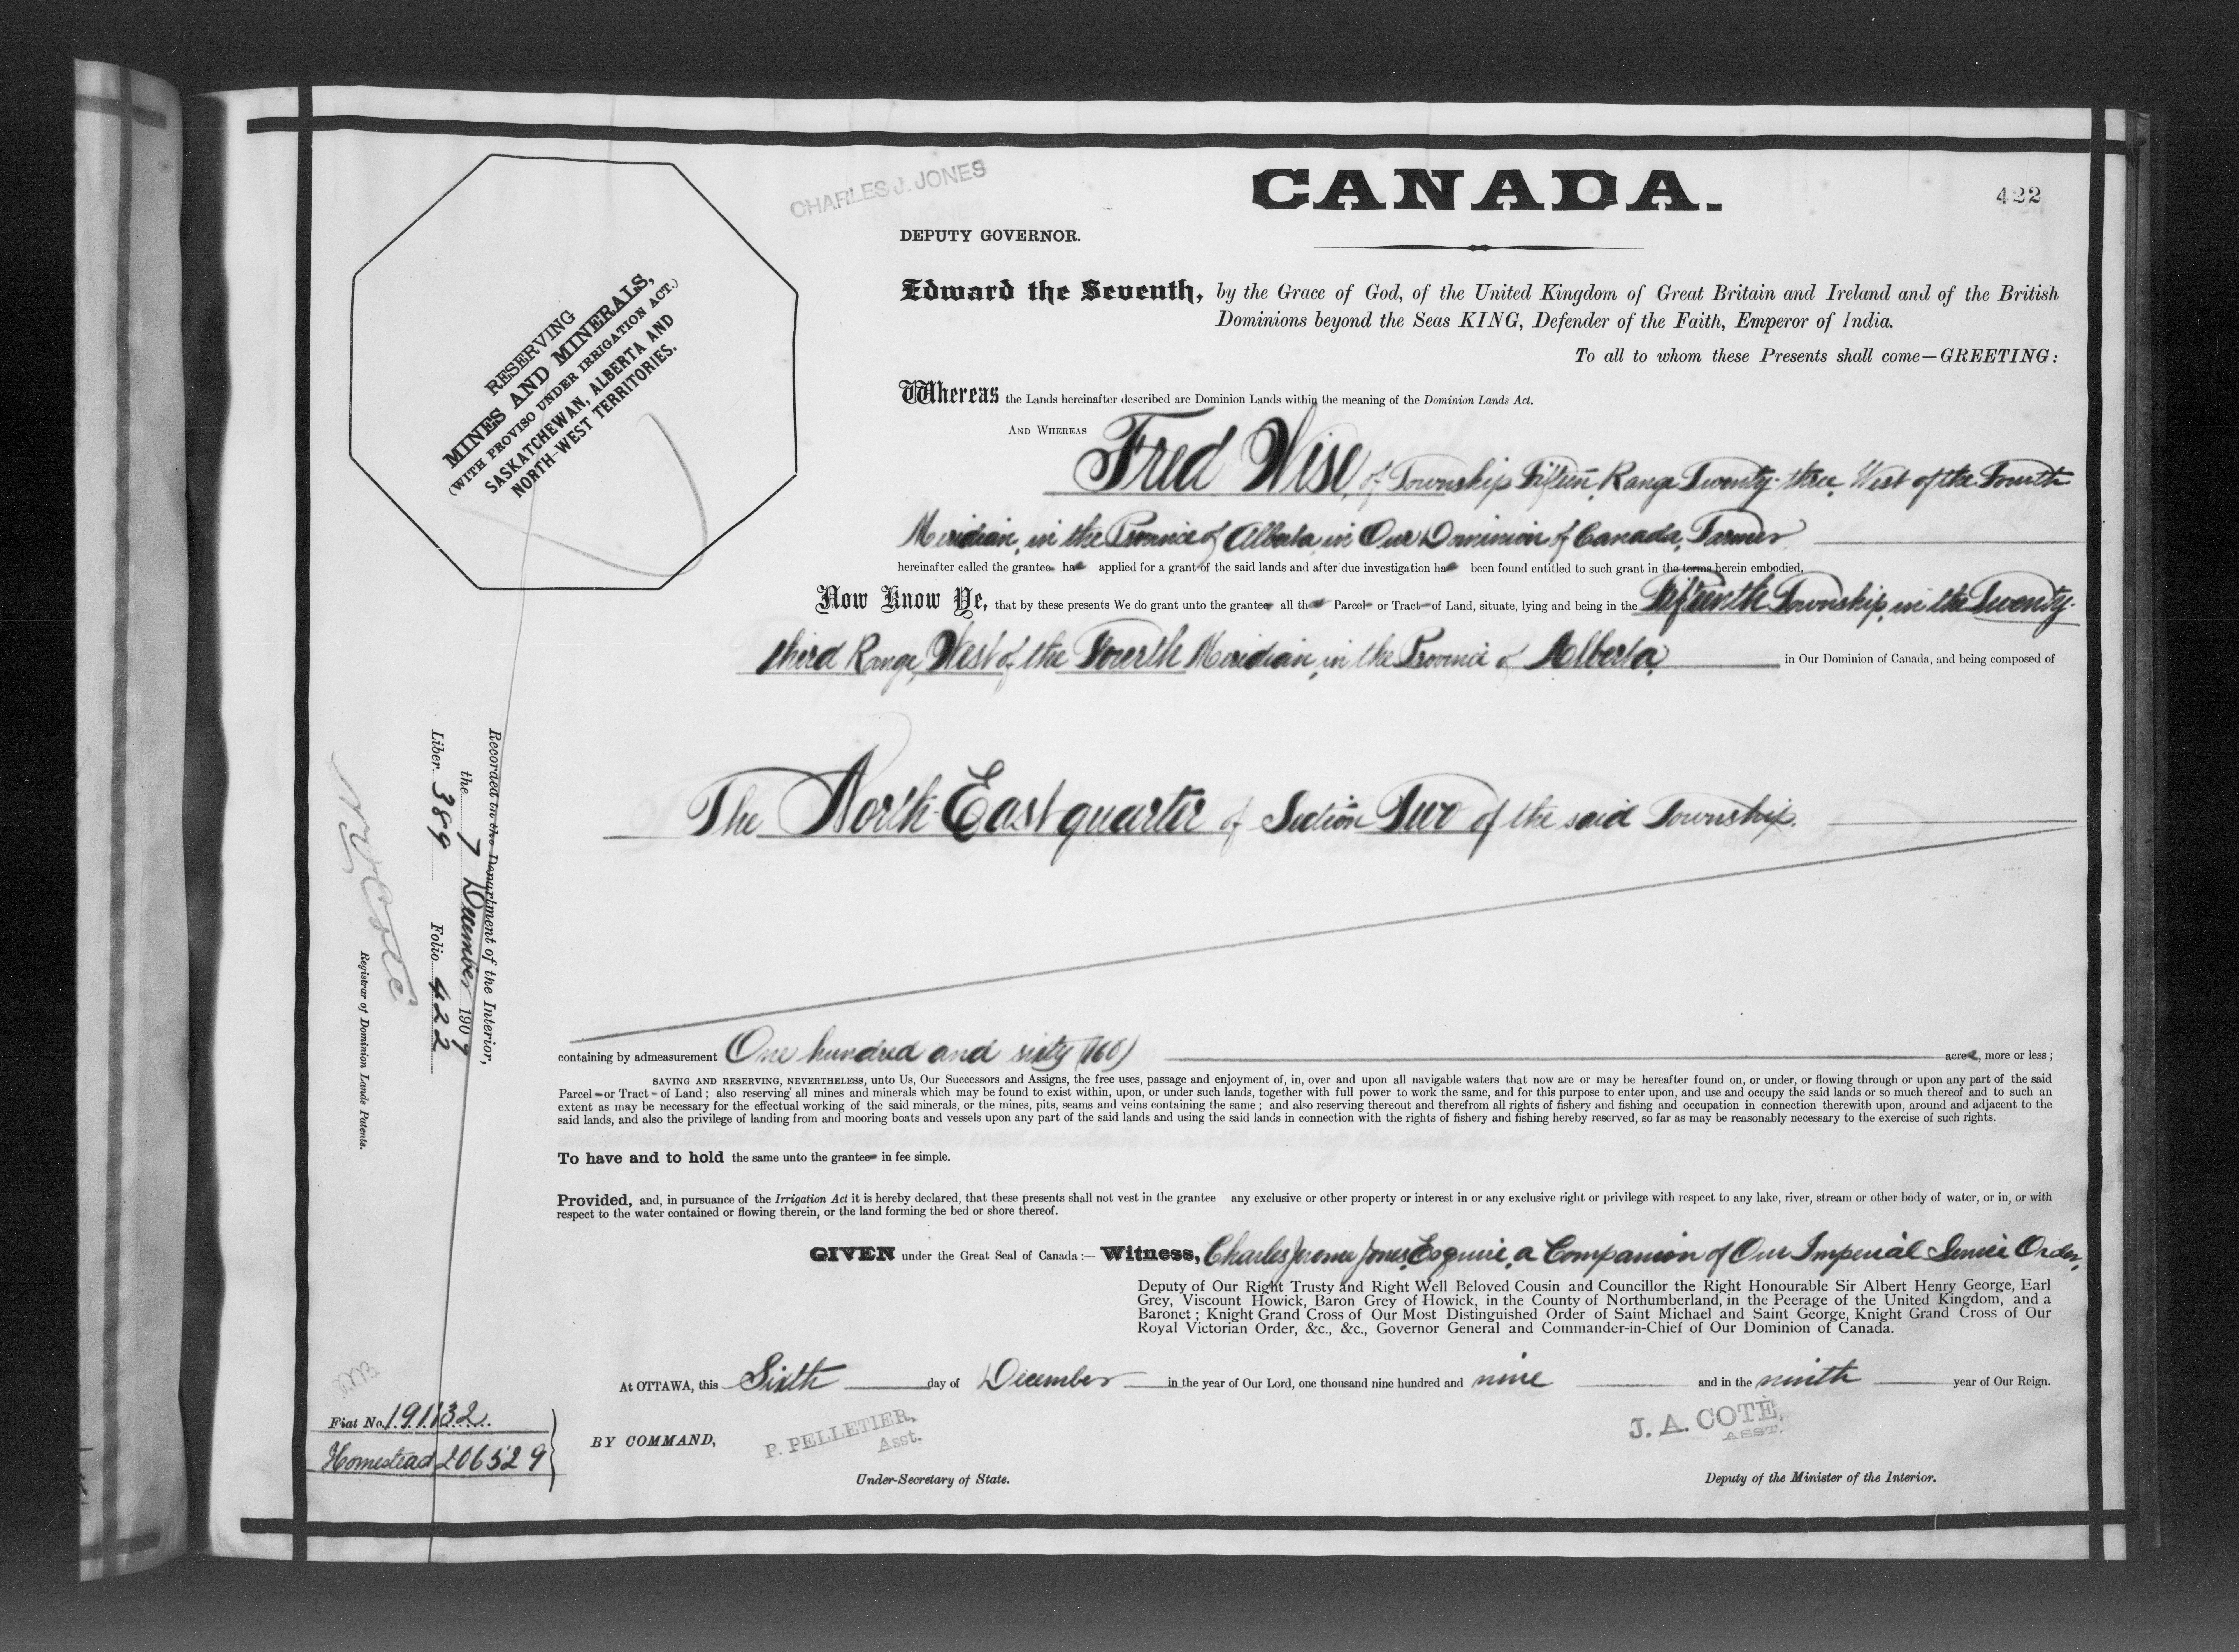 CANADA.
422
CHARLES J. JONES
DEPUTY GOVERNOR.
RESERVING
MINES AND MINERALS,
(WITH PROVISO UNDER IRRIGATION ACT.)
SASKATCHEWAN, ALBERTA AND
NORTH-WEST TERRITORIES.
Edward the Seventh, by the Grace of God, of the United Kingdom of Great Britain and Ireland and of the British
Dominions beyond the Seas KING, Defender of the Faith, Emperor of India.
To all to whom these Presents shall come—GREETING:
Whereas the Lands hereinafter described are Dominion Lands within the meaning of the Dominion Lands Act.
AND WHEREAS Fred Wise, of Township Fifteen, Range Twenty-three, West of the Fourth
Meridian, in the Province of Alberta, in Our Dominion of Canada, Farmer
hereinafter called the grantee has applied for a grant of the said lands and after due investigation has been found entitled to such grant in the terms herein embodied.
Now Know Ye, that by these presents We do grant unto the grantee all that Parcel or Tract of Land, situate, lying and being in the Fifteenth Township, in the Twenty-
third Range, West of the Fourth Meridian, in the Province of Alberta, in Our Dominion of Canada, and being composed of
The North-East quarter of Section Two of the said Township.
containing by admeasurement One hundred and sixty (160) acres, more or less;
SAVING AND RESERVING, NEVERTHELESS, unto Us, Our Successors and Assigns, the free uses, passage and enjoyment of, in, over and upon all navigable waters that now are or may be hereafter found on, or under, or flowing through or upon any part of the said
Parcel or Tract of Land; also reserving all mines and minerals which may be found to exist within, upon, or under such lands, together with full power to work the same, and for this purpose to enter upon, and use and occupy the said lands or so much thereof and to such an
extent as may be necessary for the effectual working of the said minerals, or the mines, pits, seams and veins containing the same; and also reserving thereout and therefrom all rights of fishery and fishing and occupation in connection therewith upon, around and adjacent to the
said lands, and also the privilege of landing from and mooring boats and vessels upon any part of the said lands and using the said lands in connection with the rights of fishery and fishing hereby reserved, so far as may be reasonably necessary to the exercise of such rights.
To have and to hold the same unto the grantee in fee simple.
Provided, and, in pursuance of the Irrigation Act it is hereby declared, that these presents shall not vest in the grantee any exclusive or other property or interest in or any exclusive right or privilege with respect to any lake, river, stream or other body of water, or in, or with
respect to the water contained or flowing therein, or the land forming the bed or shore thereof.
GIVEN under the Great Seal of Canada:— Witness, Charles Jerome Jones, Esquire, a Companion of Our Imperial Service Order,
Deputy of Our Right Trusty and Right Well Beloved Cousin and Councillor the Right Honourable Sir Albert Henry George, Earl
Grey, Viscount Howick, Baron Grey of Howick, in the County of Northumberland, in the Peerage of the United Kingdom, and a
Baronet; Knight Grand Cross of Our Most Distinguished Order of Saint Michael and Saint George, Knight Grand Cross of Our
Royal Victorian Order, &c., &c., Governor General and Commander-in-Chief of Our Dominion of Canada.
At OTTAWA, this Sixth day of December in the year of Our Lord, one thousand nine hundred and nine and in the ninth year of Our Reign.
BY COMMAND,
P. PELLETIER,
Asst.
Under-Secretary of State.
J. A. COTÉ,
ASST.
Deputy of the Minister of the Interior.
Recorded in the Department of the Interior,
the 7 December 1909
Liber 389 Folio 422
Registrar of Dominion Lands Patents.
Fiat No. 191132
Homestead 206529